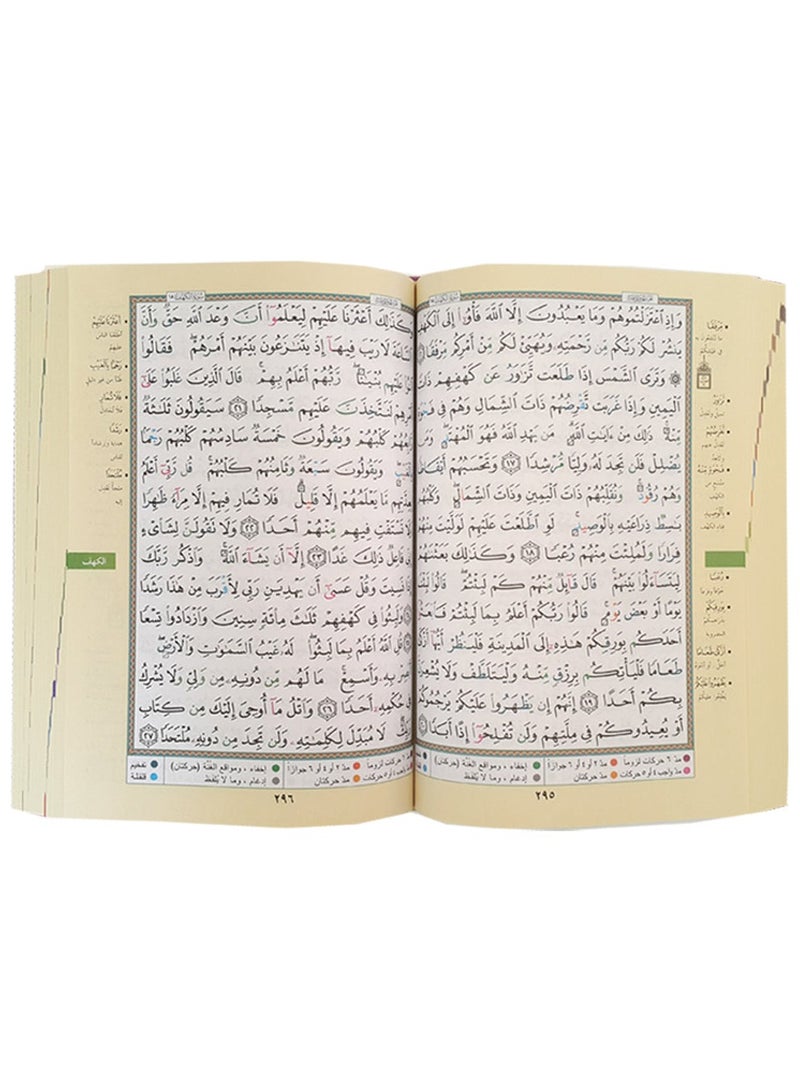 سورة الكهف ١٨
وَإِذِ ٱعْتَزَلْتُمُوهُمْ وَمَا يَعْبُدُونَ إِلَّا ٱللَّهَ فَأْوُۥٓا۟ إِلَى ٱلْكَهْفِ
يَنشُرْ لَكُمْ رَبُّكُم مِّن رَّحْمَتِهِۦ وَيُهَيِّئْ لَكُم مِّنْ أَمْرِكُم مِّرْفَقًا
۞ وَتَرَى ٱلشَّمْسَ إِذَا طَلَعَت تَّزَٰوَرُ عَن كَهْفِهِمْ ذَاتَ
ٱلْيَمِينِ وَإِذَا غَرَبَت تَّقْرِضُهُمْ ذَاتَ ٱلشِّمَالِ وَهُمْ فِى فَجْوَةٍ
مِّنْهُ ۚ ذَٰلِكَ مِنْ ءَايَٰتِ ٱللَّهِ ۗ مَن يَهْدِ ٱللَّهُ فَهُوَ ٱلْمُهْتَدِ ۖ وَمَن
يُضْلِلْ فَلَن تَجِدَ لَهُۥ وَلِيًّا مُّرْشِدًا ١٧ وَتَحْسَبُهُمْ أَيْقَاظًا
وَهُمْ رُقُودٌ ۚ وَنُقَلِّبُهُمْ ذَاتَ ٱلْيَمِينِ وَذَاتَ ٱلشِّمَالِ ۖ وَكَلْبُهُم
بَٰسِطٌ ذِرَاعَيْهِ بِٱلْوَصِيدِ ۚ لَوِ ٱطَّلَعْتَ عَلَيْهِمْ لَوَلَّيْتَ مِنْهُمْ
فِرَارًا وَلَمُلِئْتَ مِنْهُمْ رُعْبًا ١٨ وَكَذَٰلِكَ بَعَثْنَٰهُمْ
لِيَتَسَآءَلُوا۟ بَيْنَهُمْ ۚ قَالَ قَآئِلٌ مِّنْهُمْ كَمْ لَبِثْتُمْ ۖ قَالُوا۟ لَبِثْنَا
يَوْمًا أَوْ بَعْضَ يَوْمٍ ۚ قَالُوا۟ رَبُّكُمْ أَعْلَمُ بِمَا لَبِثْتُمْ فَٱبْعَثُوٓا۟
أَحَدَكُم بِوَرِقِكُمْ هَٰذِهِۦٓ إِلَى ٱلْمَدِينَةِ فَلْيَنظُرْ أَيُّهَآ أَزْكَىٰ
طَعَامًا فَلْيَأْتِكُم بِرِزْقٍ مِّنْهُ وَلْيَتَلَطَّفْ وَلَا يُشْعِرَنَّ
بِكُمْ أَحَدًا ١٩ إِنَّهُمْ إِن يَظْهَرُوا۟ عَلَيْكُمْ يَرْجُمُوكُمْ
أَوْ يُعِيدُوكُمْ فِى مِلَّتِهِمْ وَلَن تُفْلِحُوٓا۟ إِذًا أَبَدًا ٢٠
مِرْفَقًا
تَزَاوَرُ
تَقْرِضُهُمْ
فَجْوَةٍ مِنْهُ
بِالْوَصِيدِ
رُعْبًا
بِوَرِقِكُمْ
أَزْكَى طَعَامًا
يَظْهَرُوا عَلَيْكُمْ
مدّ ٦ حركات لزوماً مدّ ٢ أو ٤ أو ٦ جوازاً إخفاء ، ومواقع الغنّة (حركتان)
مدّ واجب ٤ أو ٥ حركات مدّ حركتان إدغام ، وما لا يُلفَظ
٢٩٥
سورة الكهف ١٨
وَكَذَٰلِكَ أَعْثَرْنَا عَلَيْهِمْ لِيَعْلَمُوٓا۟ أَنَّ وَعْدَ ٱللَّهِ حَقٌّ وَأَنَّ
ٱلسَّاعَةَ لَا رَيْبَ فِيهَآ إِذْ يَتَنَٰزَعُونَ بَيْنَهُمْ أَمْرَهُمْ ۖ فَقَالُوا۟
ٱبْنُوا۟ عَلَيْهِم بُنْيَٰنًا ۖ رَّبُّهُمْ أَعْلَمُ بِهِمْ ۚ قَالَ ٱلَّذِينَ غَلَبُوا۟ عَلَىٰٓ
أَمْرِهِمْ لَنَتَّخِذَنَّ عَلَيْهِم مَّسْجِدًا ٢١ سَيَقُولُونَ ثَلَٰثَةٌ
رَّابِعُهُمْ كَلْبُهُمْ وَيَقُولُونَ خَمْسَةٌ سَادِسُهُمْ كَلْبُهُمْ رَجْمًۢا
بِٱلْغَيْبِ ۖ وَيَقُولُونَ سَبْعَةٌ وَثَامِنُهُمْ كَلْبُهُمْ ۚ قُل رَّبِّىٓ أَعْلَمُ
بِعِدَّتِهِم مَّا يَعْلَمُهُمْ إِلَّا قَلِيلٌ ۗ فَلَا تُمَارِ فِيهِمْ إِلَّا مِرَآءً ظَٰهِرًا
وَلَا تَسْتَفْتِ فِيهِم مِّنْهُمْ أَحَدًا ٢٢ وَلَا تَقُولَنَّ لِشَا۟ىْءٍ
إِنِّى فَاعِلٌ ذَٰلِكَ غَدًا ٢٣ إِلَّآ أَن يَشَآءَ ٱللَّهُ ۚ وَٱذْكُر رَّبَّكَ
إِذَا نَسِيتَ وَقُلْ عَسَىٰٓ أَن يَهْدِيَنِ رَبِّى لِأَقْرَبَ مِنْ هَٰذَا رَشَدًا
٢٤ وَلَبِثُوا۟ فِى كَهْفِهِمْ ثَلَٰثَ مِا۟ئَةٍ سِنِينَ وَٱزْدَادُوا۟ تِسْعًا
٢٥ قُلِ ٱللَّهُ أَعْلَمُ بِمَا لَبِثُوا۟ ۖ لَهُۥ غَيْبُ ٱلسَّمَٰوَٰتِ وَٱلْأَرْضِ ۖ
أَبْصِرْ بِهِۦ وَأَسْمِعْ ۚ مَا لَهُم مِّن دُونِهِۦ مِن وَلِىٍّ وَلَا يُشْرِكُ
فِى حُكْمِهِۦٓ أَحَدًا ٢٦ وَٱتْلُ مَآ أُوحِىَ إِلَيْكَ مِن كِتَابِ
رَبِّكَ ۖ لَا مُبَدِّلَ لِكَلِمَٰتِهِۦ وَلَن تَجِدَ مِن دُونِهِۦ مُلْتَحَدًا ٢٧
أَعْثَرْنَا عَلَيْهِمْ
رَجْمًا بِالْغَيْبِ
فَلَا تُمَارِ
رَشَدًا
مُلْتَحَدًا
الكهف
مدّ ٦ حركات لزوماً مدّ ٢ أو ٤ أو ٦ جوازاً إخفاء ، ومواقع الغنّة (حركتان) تفخيم
مدّ واجب ٤ أو ٥ حركات مدّ حركتان إدغام ، وما لا يُلفَظ قلقلة
٢٩٦